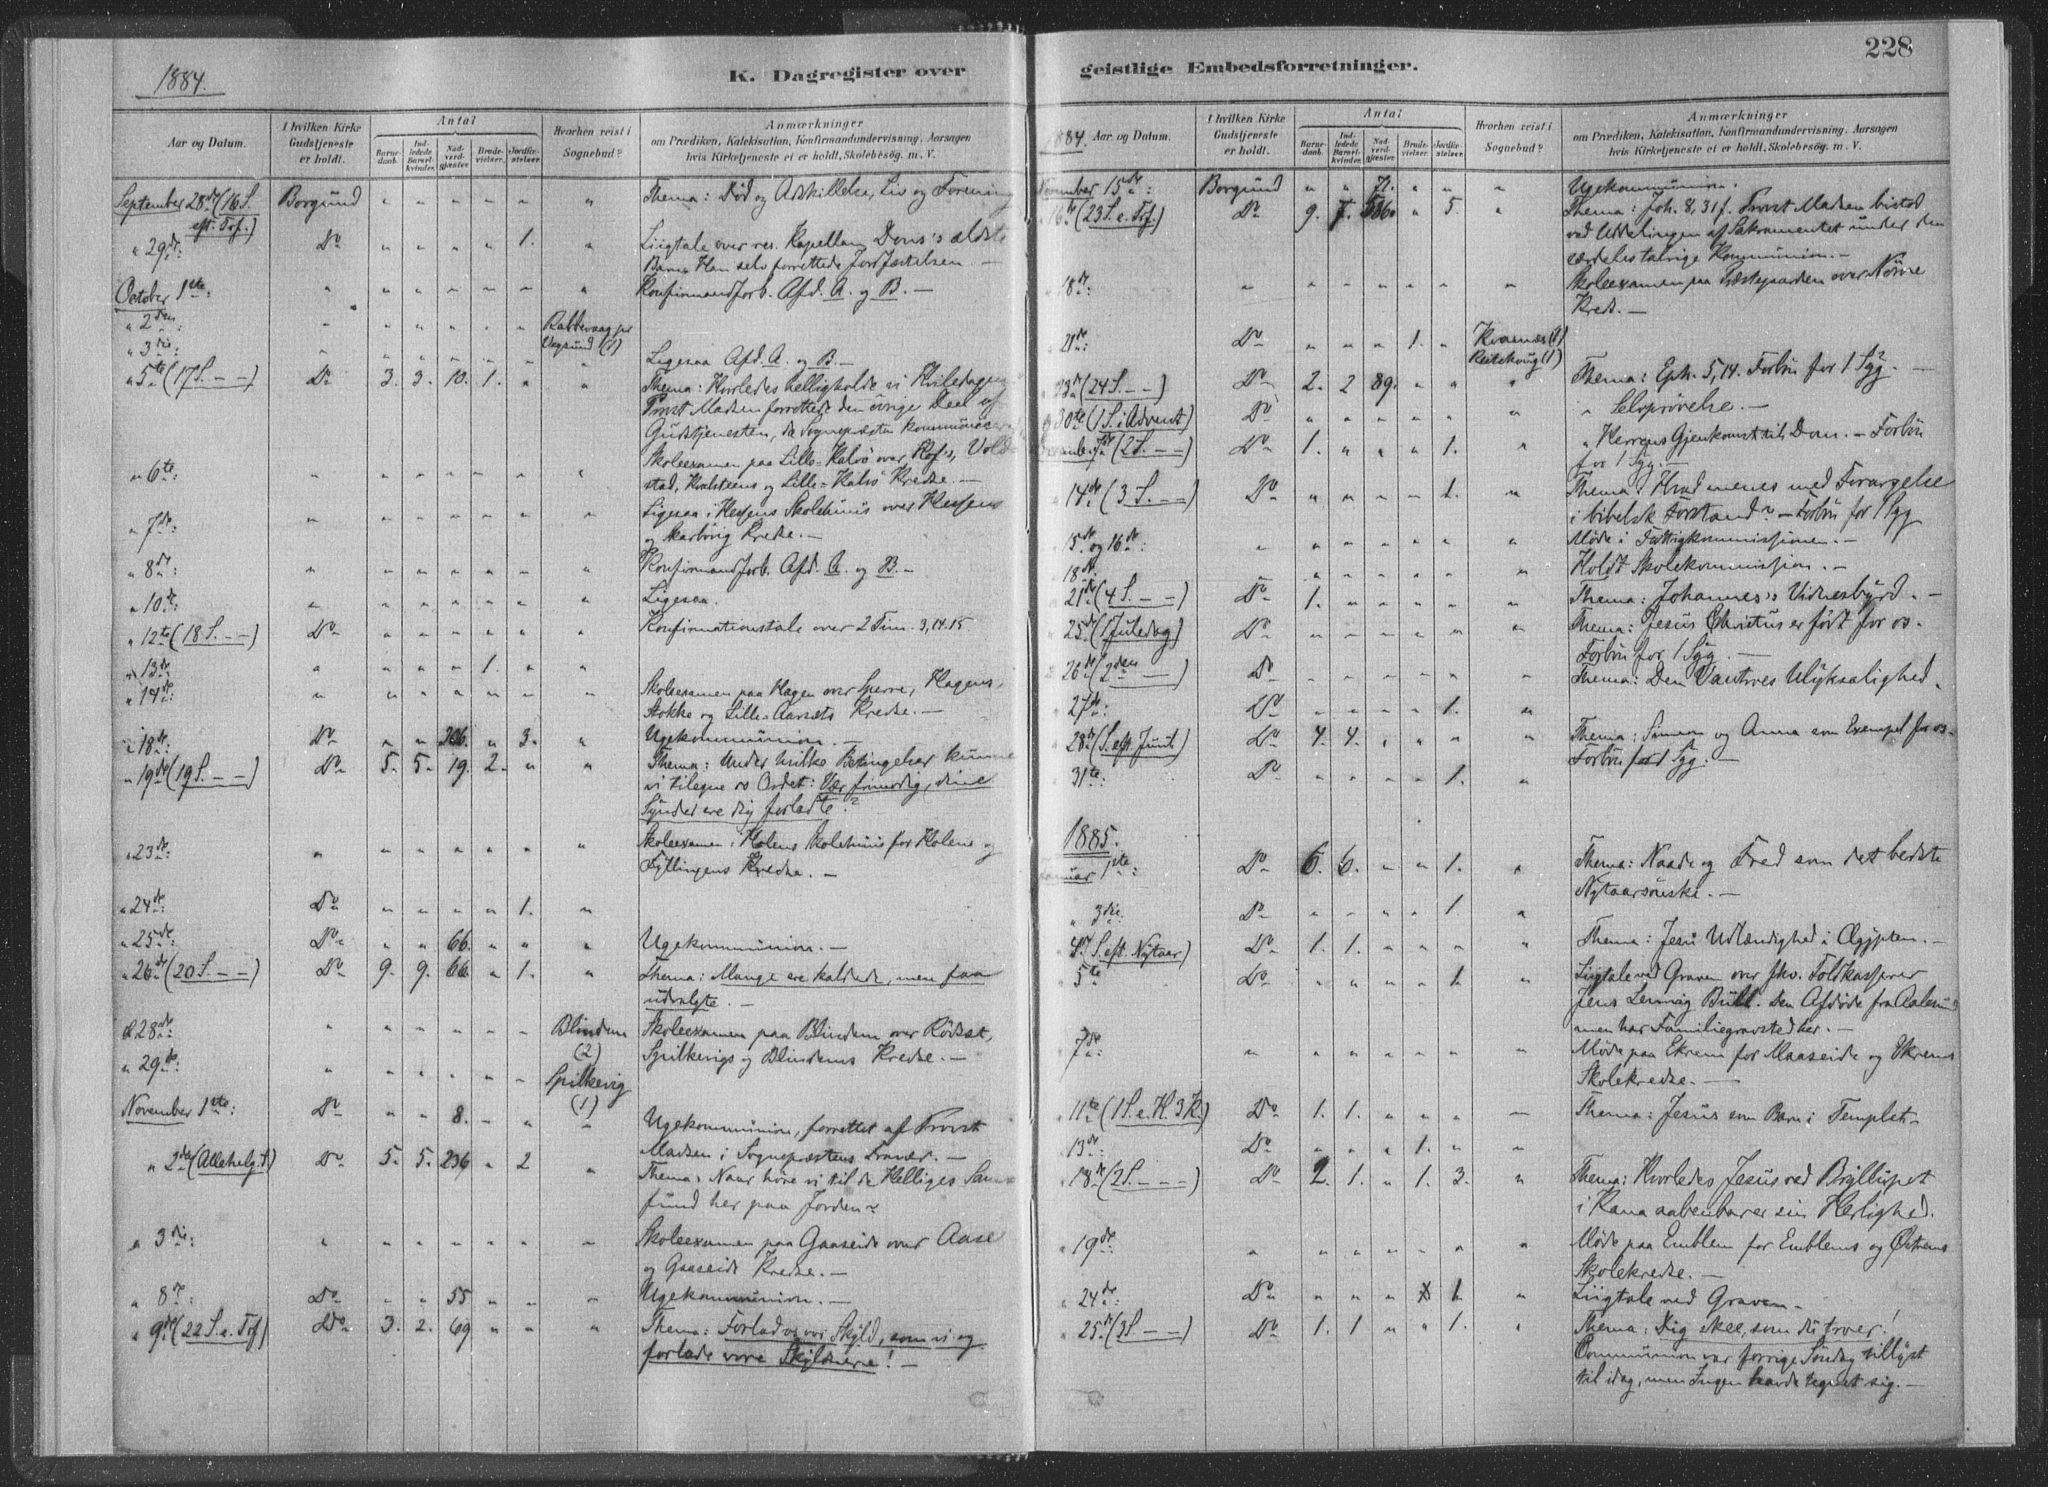 228
1884.
K. Dagregister over
geistlige Embedsforretninger.
Aar og Datum.
I hvilken Kirke Gudstjeneste er holdt.
Antal
Barnedaab.
Indledede Barselkvinder.
Nadverdgjester.
Brudevielser.
Jordfæstelser.
Hvorhen reist i Sognebud?
Anmærkninger
om Prædiken, Katekisation, Konfirmandundervisning, Aarsagen
hvis Kirketjeneste ei er holdt, Skolebesøg, m. V.
September 28de (16 S. eft. Tref.) Borgund " " " " " " Thema: Død og Adskillelse, Liv og Forening
" 29de: Do " " " " 1. " Liigtale over res. Kapellan Dons's ældste
Barn. Han selv forrettede Jordfæstelsen. —
October 1ste: " " " " " " " Konfirmandforb. Afd. A. og B. —
" 2den: " " " " " Rabbevaag pr
" 3die: " " " " " Vegsund (1) Ligesaa Afd. A. og B. —
" 5te (17 S. — —) Do 3. 3. 10. 1. " " Thema: Hvorledes helligholde vi Hviledagen
Provst Madsen forrettede den øvrige Deel af
Gudstjenesten, da Sognepræsten kommunicer
" 6te: " " " " " " " Skoleexamen paa Lille-Kalvø over Vold-
stad, Kvalsteens og Lille-Kalvø Kredse. —
" 7de: " " " " " " " Ligesaa i Hessens Skolehuus over Hessens
og Skarbøvig Kredse. —
" 8de: " " " " " " " Konfirmandforb. Afd. A. og B. —
" 10de: " " " " " " " Ligesaa.
" 12te (18 S. — —) Do " " " " " " Konfirmationstale over 2 Tim. 3,14.15
" 13de: " " " 1. " "
" 14de: " " " " " " " Skoleexamen paa Hagen over Sperre, Hagens,
Stokke og Lille-Aarsæts Kredse. —
" 18de: Do " " 306. " 3. " Ugekommunion. —
" 19de (19 S. — —) Do 5. 5. 19. 2. " " Thema: Under hvilke Betingelser kunne
vi tilegne os Ordet: Vær frimodig, dine
Synder ere dig forladte?
" 23de: " " " " " " " Skoleexamen i Holens Skolehuus for Holens og
Fyllingens Kredse. —
" 24de: Do " " " " 1. "
" 25de: Do " " 66. " " " Ugekommunion. —
" 26de (20 S. — —) Do 9. 9. 66. " 1. " Thema: Mange ere kaldede, men faa
udvalgte. —
" 28de: " " " " " " Blindem (2) Skoleexamen paa Blindem over Rødset,
" 29de: " " " " " " Spilkevig (1) Spilkevigs og Blindems Kredse. —
November 1ste: Do " " 8. " " — Ugekommunion, forrettet af Provst
Madsen i Sognepræstens Fravær. —
" 2de (Allehelg.d.) Do 5. 5. 236 " 2 " Thema: Naar høre vi til de Helliges Sam-
fund her paa Jorden?
" 3die: " " " " " " " Skoleexamen paa Gaaseide over Aase
og Gaaseide Kredse. —
" 8de: Do " " 55 " " " Ugekommunion. —
" 9de (22 S. e. Tref.) Do 3. 2. 69 " " " Thema: Forlad os vor Skyld, som vi og
forlade vore Skyldnere! —
1884. Aar og Datum.
I hvilken Kirke Gudstjeneste er holdt.
Antal
Barnedaab.
Indledede Barselkvinder.
Nadverdgjester.
Brudevielser.
Jordfæstelser.
Hvorhen reist i Sognebud?
Anmærkninger
om Prædiken, Katekisation, Konfirmandundervisning, Aarsagen
hvis Kirketjeneste ei er holdt, Skolebesøg, m. V.
November 15de: Borgund " " 71. " " " Ugekommunion.
" 16de (23 S. e. Tref.) Do 9. 7. 536. " 5. " Thema: Joh. 8, 31 f. Provst Madsen bistod
ved Uddelingen af Sakramentet under den
særdeles talrige Kommunion. —
" 18de: " " " " " " " Skoleexamen paa Præstegaarden over Nørve
Kreds. —
" 21de: Do " " " 1. " Kvasnæs (1)
(1)
" 23de (24 S. — —) Do 2. 2 89. " " " Thema: Eph. 5,14. Forbøn for 1 Syg. —
" 30te (1 S. i Advent) Do " " " " " " " Selvprøvelse. —
December 7de (2 S. — —) Do 1. " " " 1. " " Herrens Gjenkomst til Dom. — Forbøn
for 1 Syg. —
" 14de (3 S. — —) Do " " " " 1. " Thema: Hvad menes med Forargelse
i bibelsk Forstand? — Forbøn for 1 Syg
" 15de og 16de: " " " " " " " Møde i Fattigkommissionen. —
" 18de: " " " " " " Holdt Skolekommission. —
" 21de (4 S. — —) Do 1. " " " " " Thema: Johannes's Vidnesbyrd. —
" 25de (1 Juledag) Do " " " " " " Thema: Jesus Christus er født for os.
Forbøn for 1 Syg. —
" 26de (2den —) Do " " " " " " Thema: Den Vantroes Ulyksalighed.
" 27de: Do " " " " 1. "
" 28de (S. eft. Juul) Do 4. 4. " " " " Thema: Simeon og Anna som Exempel for os.
Forbøn for 1 Syg. —
" 31te: Do " " " " 1. "
1885.
Januar 1ste: Do 6. 6. " " 1. " Thema: Naade og Fred som det bedste
Nytaarsønske. —
" 3die: Do " " " " 1. "
" 4de (S. eft. Nytaar) Do 1. 1. " " " " Thema: Jesu Udlændighed i Ægypten. —
" 5te Do " " " " 1. " Liigtale ved Graven over fhv. Toldkasserer
Jens Lemvig Bull. Den Afdøde fra Aalesund
men har Familiegravsted her. —
" 7de: " " " " " " " Møde paa Ekrem for Maaseide og Ekrems
Skolekredse. —
" 11te (1 S. e. H. 3 K.) Do 1. 1. " " " — Thema: Jesus som Barn i Templet.
" 13de: Do " " " 1. " "
" 18de (2 S. — — —) Do 2. 1. " 1. 3. " Thema: Hvorledes Jesus ved Bryllupet
i Kana aabenbarer sin Herlighed.
" 19de: " " " " " " " Møde paa Emblem for Emblems og Østrems
Skolekredse. —
" 24de: Do " " " " 1. " Liigtale ved Graven. —
" 25de (3 S. — —) Do 1. 1 " " 1. " Thema: Dig skee, som du troer!
Communion var forrige Søndag tillyst
til idag, men Ingen havde tegnet sig. —